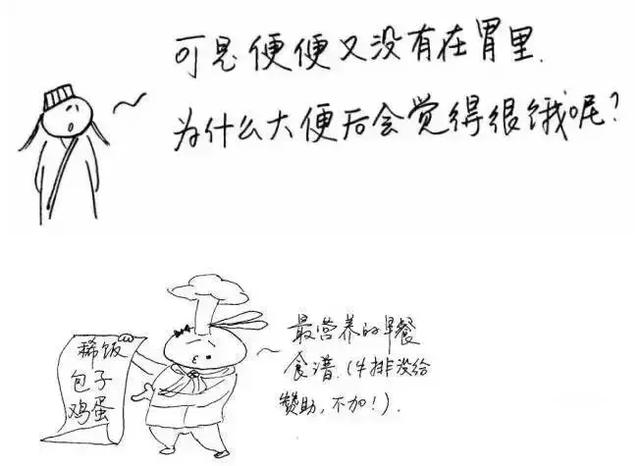 可是便便又没有在胃里.
为什么大便后会觉得很饿呢?
稀饭
包子
鸡蛋
最营养的早餐
食谱.(牛排没给
赞助,不加!).